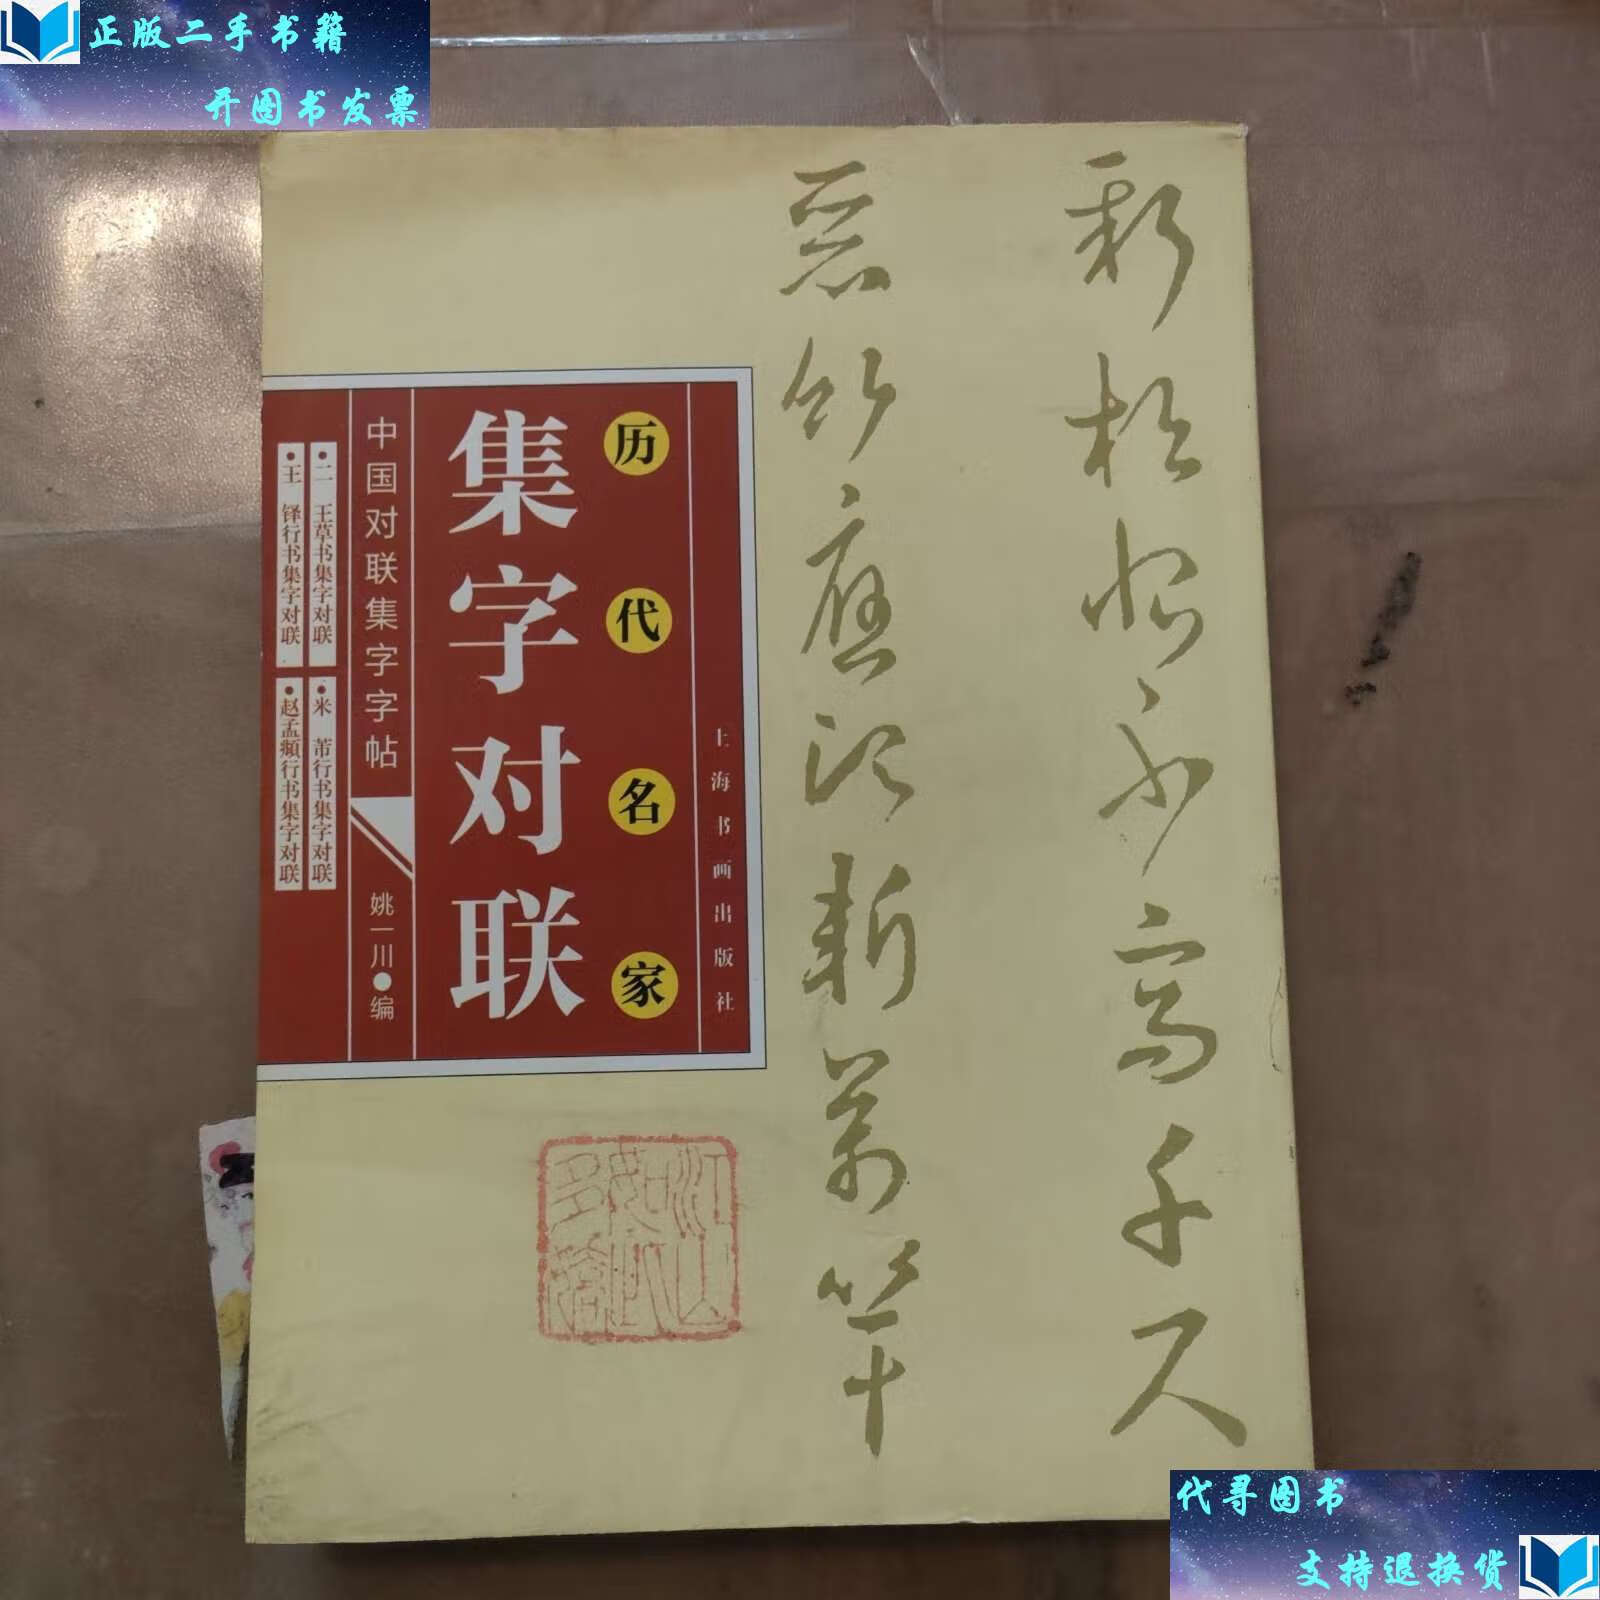 正版二手书籍
开图书发票
新松恨不高千尺
恶竹应须斩万竿
历代名家
集字对联
上海书画出版社
中国对联集字字帖
姚一川●编
●二 王草书集字对联
●米 芾行书集字对联
●王 铎行书集字对联
●赵孟頫行书集字对联
江山如此多娇
代寻图书
支持退换货